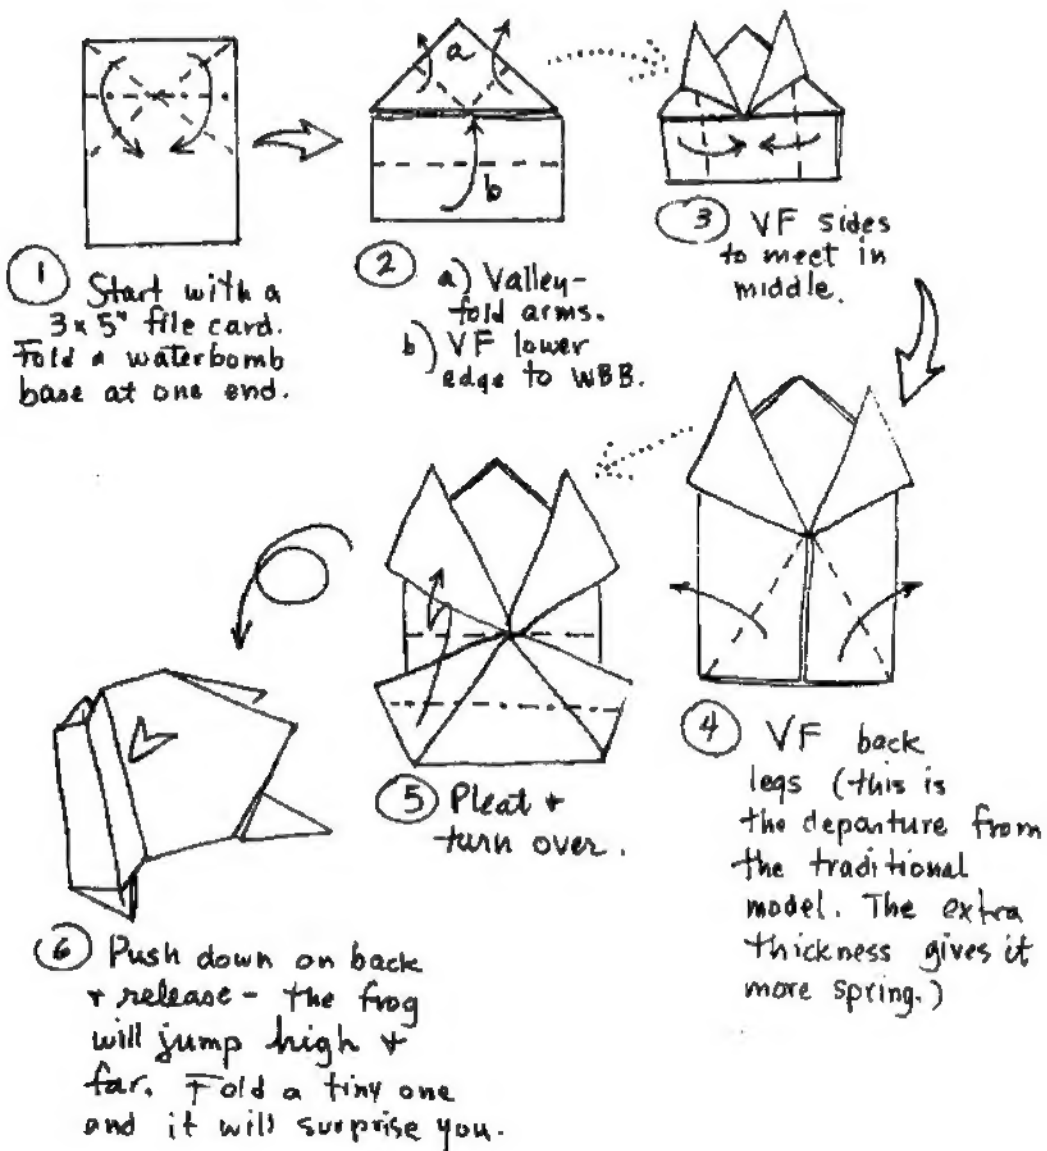 a
b
1 Start with a
3 x 5" file card.
Fold a waterbomb
base at one end.
2 a) Valley-
fold arms.
b) VF lower
edge to WBB.
3 VF sides
to meet in
middle.
4 VF back
legs (this is
the departure from
the traditional
model. The extra
thickness gives it
more spring.)
5 Pleat +
turn over.
6 Push down on back
+ release - the frog
will jump high +
far. Fold a tiny one
and it will surprise you.